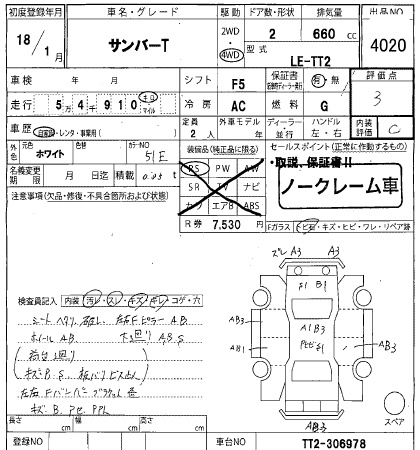 初度登録年月 車名・グレード 駆動 ドア数・形状 排気量 出品NO
18/1月 サンバーT 2WD 4WD 2 660 cc 4020
型式 LE-TT2
車検 年 月 シフト F5 保証書 有・無 評価点 3
走行 5万4千910 キロ マイル 冷房 AC 燃料 G
定員 2人 外車モデル 年 ディーラー・並行 ハンドル 左・右 内装評価 C
車歴 自家用・レンタ・事業用( )
外色 元色 ホワイト 色替 カラーNO 51E
装備品(純正品に限る) セールスポイント(正常に作動するもの)
・取説、保証書!!
PS PW AW
名義変更期限 月 日迄 積載 t
SR TV ナビ
ノークレーム車
注意事項(欠品・修復・不具合箇所および状態)
カワ エアB ABS
R券 7,530 円
Fガラス(ヒ石・キズ・ヒビ・ワレ・リペア跡)
ズレ A3 A3
S1 B1
検査員記入 内装(汚レ・スレ・キズ・キレ・コゲ・穴)
シートヘタリ 破レ 左右Fピラー AB
AB3 A1B3 AB3
ホイール AB 下廻り A,B,S
AB1
荷台廻り
キズ B.S.
キズ B.
AB3
スペア
長さ cm 幅 cm 高さ cm
登録NO 車台NO TT2-306978